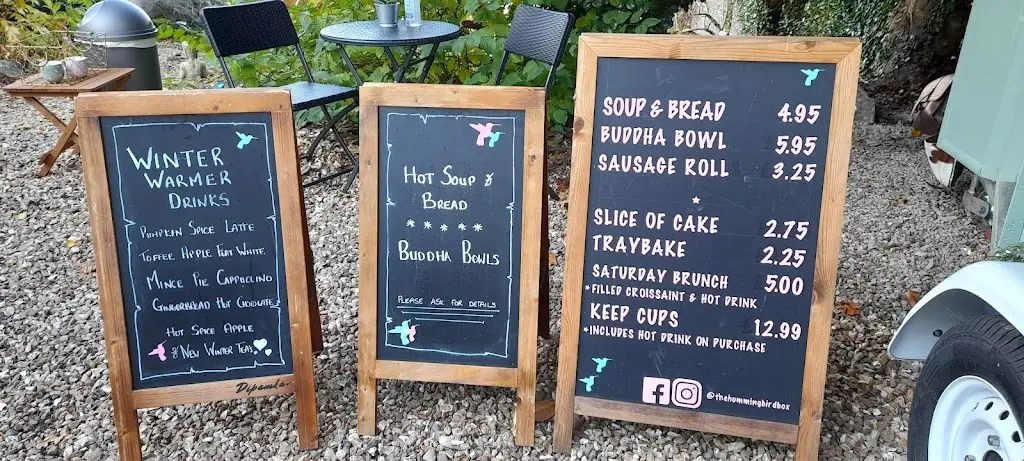 WINTER
WARMER
DRINKS
PUMPKIN SPICE LATTE
TOFFEE APPLE FLAT WHITE
MINCE PIE CAPPUCCINO
GINGERBREAD HOT CHOCOLATE
HOT SPICE APPLE
& NEW WINTER TEAS
Dipamkar
HOT SOUP &
BREAD
* * * * *
BUDDHA BOWLS
PLEASE ASK FOR DETAILS
SOUP & BREAD 4.95
BUDDHA BOWL 5.95
SAUSAGE ROLL 3.25
SLICE OF CAKE 2.75
TRAYBAKE 2.25
SATURDAY BRUNCH 5.00
*FILLED CROISSAINT & HOT DRINK
KEEP CUPS 12.99
*INCLUDES HOT DRINK ON PURCHASE
@thehummingbirdbox